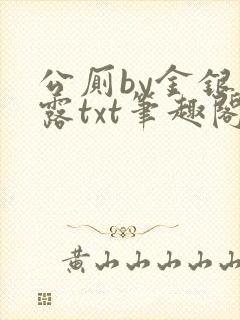 公厕by金银
露txt笔趣阁
黄山山山山山